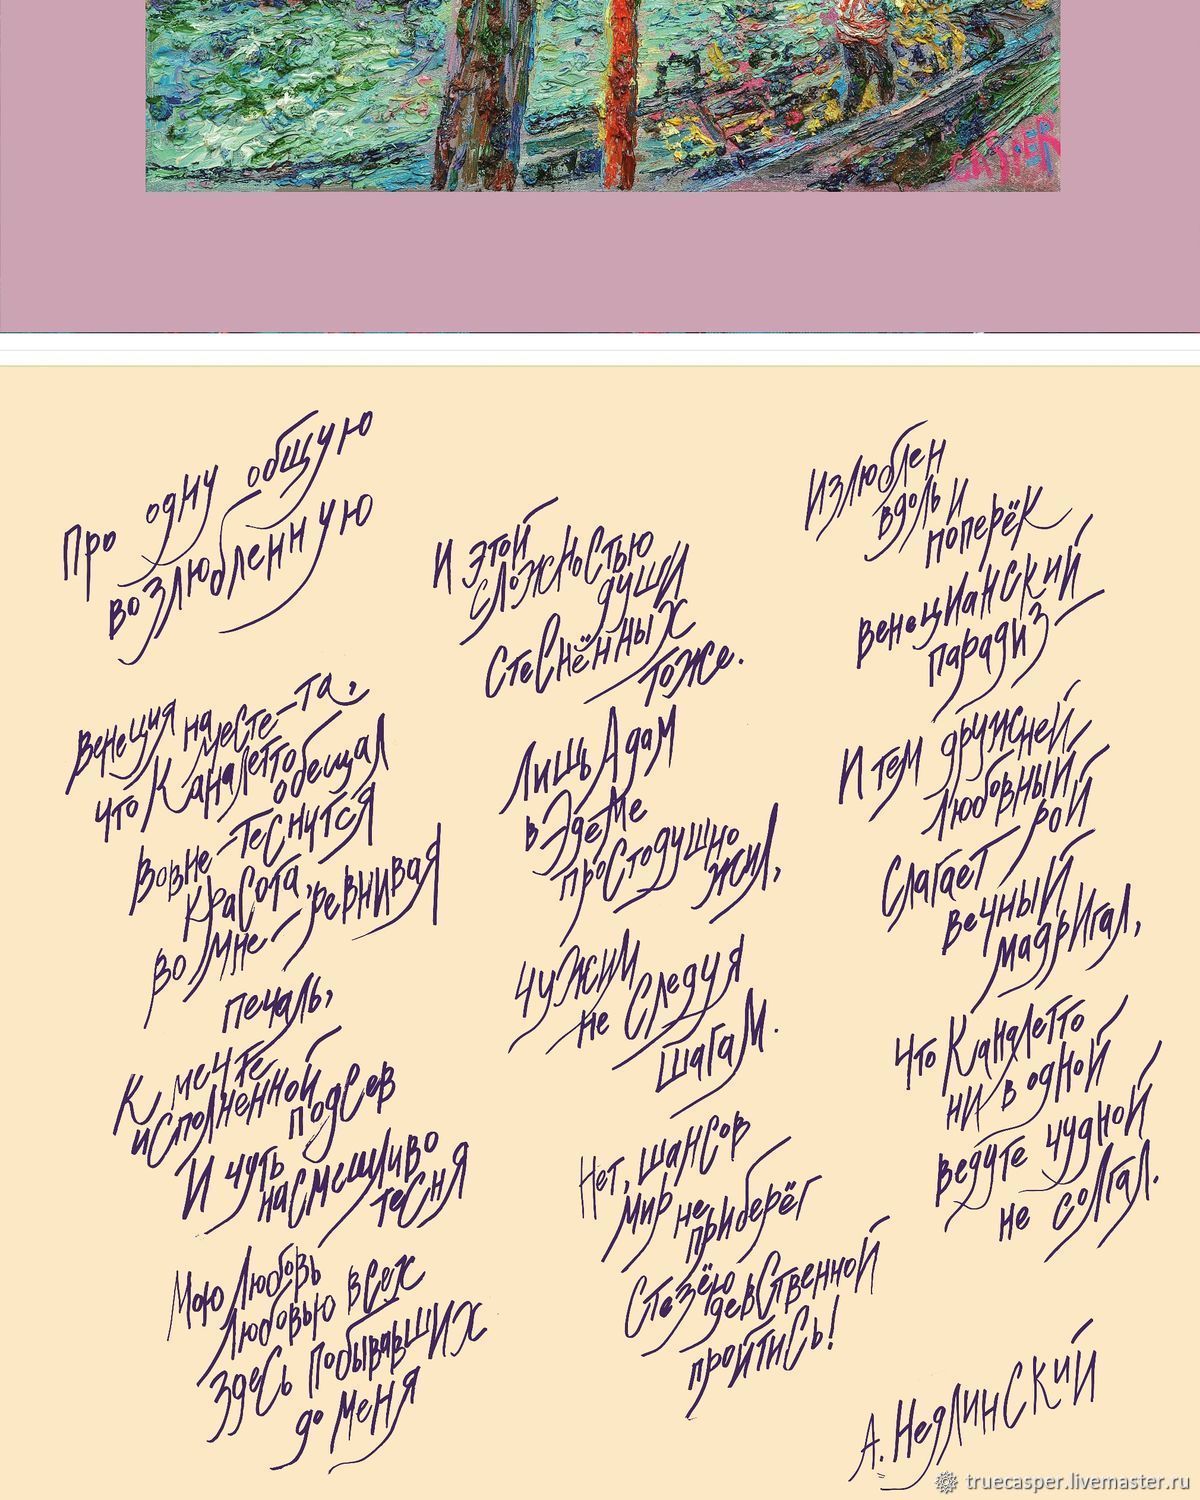 CASPER
Про одну общую
возлюбленную
Венеция на месте – та,
что Каналетто
обещал
Вовне – теснится
красота,
во мне – ревнивая
печаль,
К мечте
исполненной
подсев
И чуть
насмешливо
тесня
Мою любовь
любовью всех
здесь побывавших
до меня
И этой
сложностью
души
стеснённых
тоже.
Лишь Адам
в Эдеме
простодушно
жил,
Чужим
не следуя
шагам.
Нет, шансов
мир не
приберёг
Стезёю
девственной
пройтись!
Излюблен
вдоль и
поперёк
Венецианский
парадиз –
И тем дружней
любовный
рой
Слагает
вечный
мадригал,
Что Каналетто
ни в одной
ведуте чудной
не солгал.
А. Недлинский
truecasper.livemaster.ru